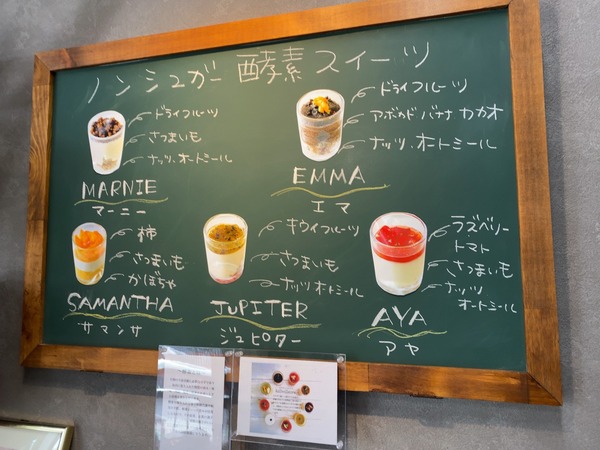 ノンシュガー 酵素 スイーツ
ドライフルーツ
さつまいも
ナッツ、オートミール
MARNIE
マーニー
ドライフルーツ
アボカド バナナ カカオ
ナッツ、オートミール
EMMA
エマ
柿
さつまいも
かぼちゃ
SAMANTHA
サマンサ
キウイフルーツ
さつまいも
ナッツオートミール
JUPITER
ジュピター
ラズベリー
トマト
さつまいも
ナッツ
オートミール
AYA
アヤ